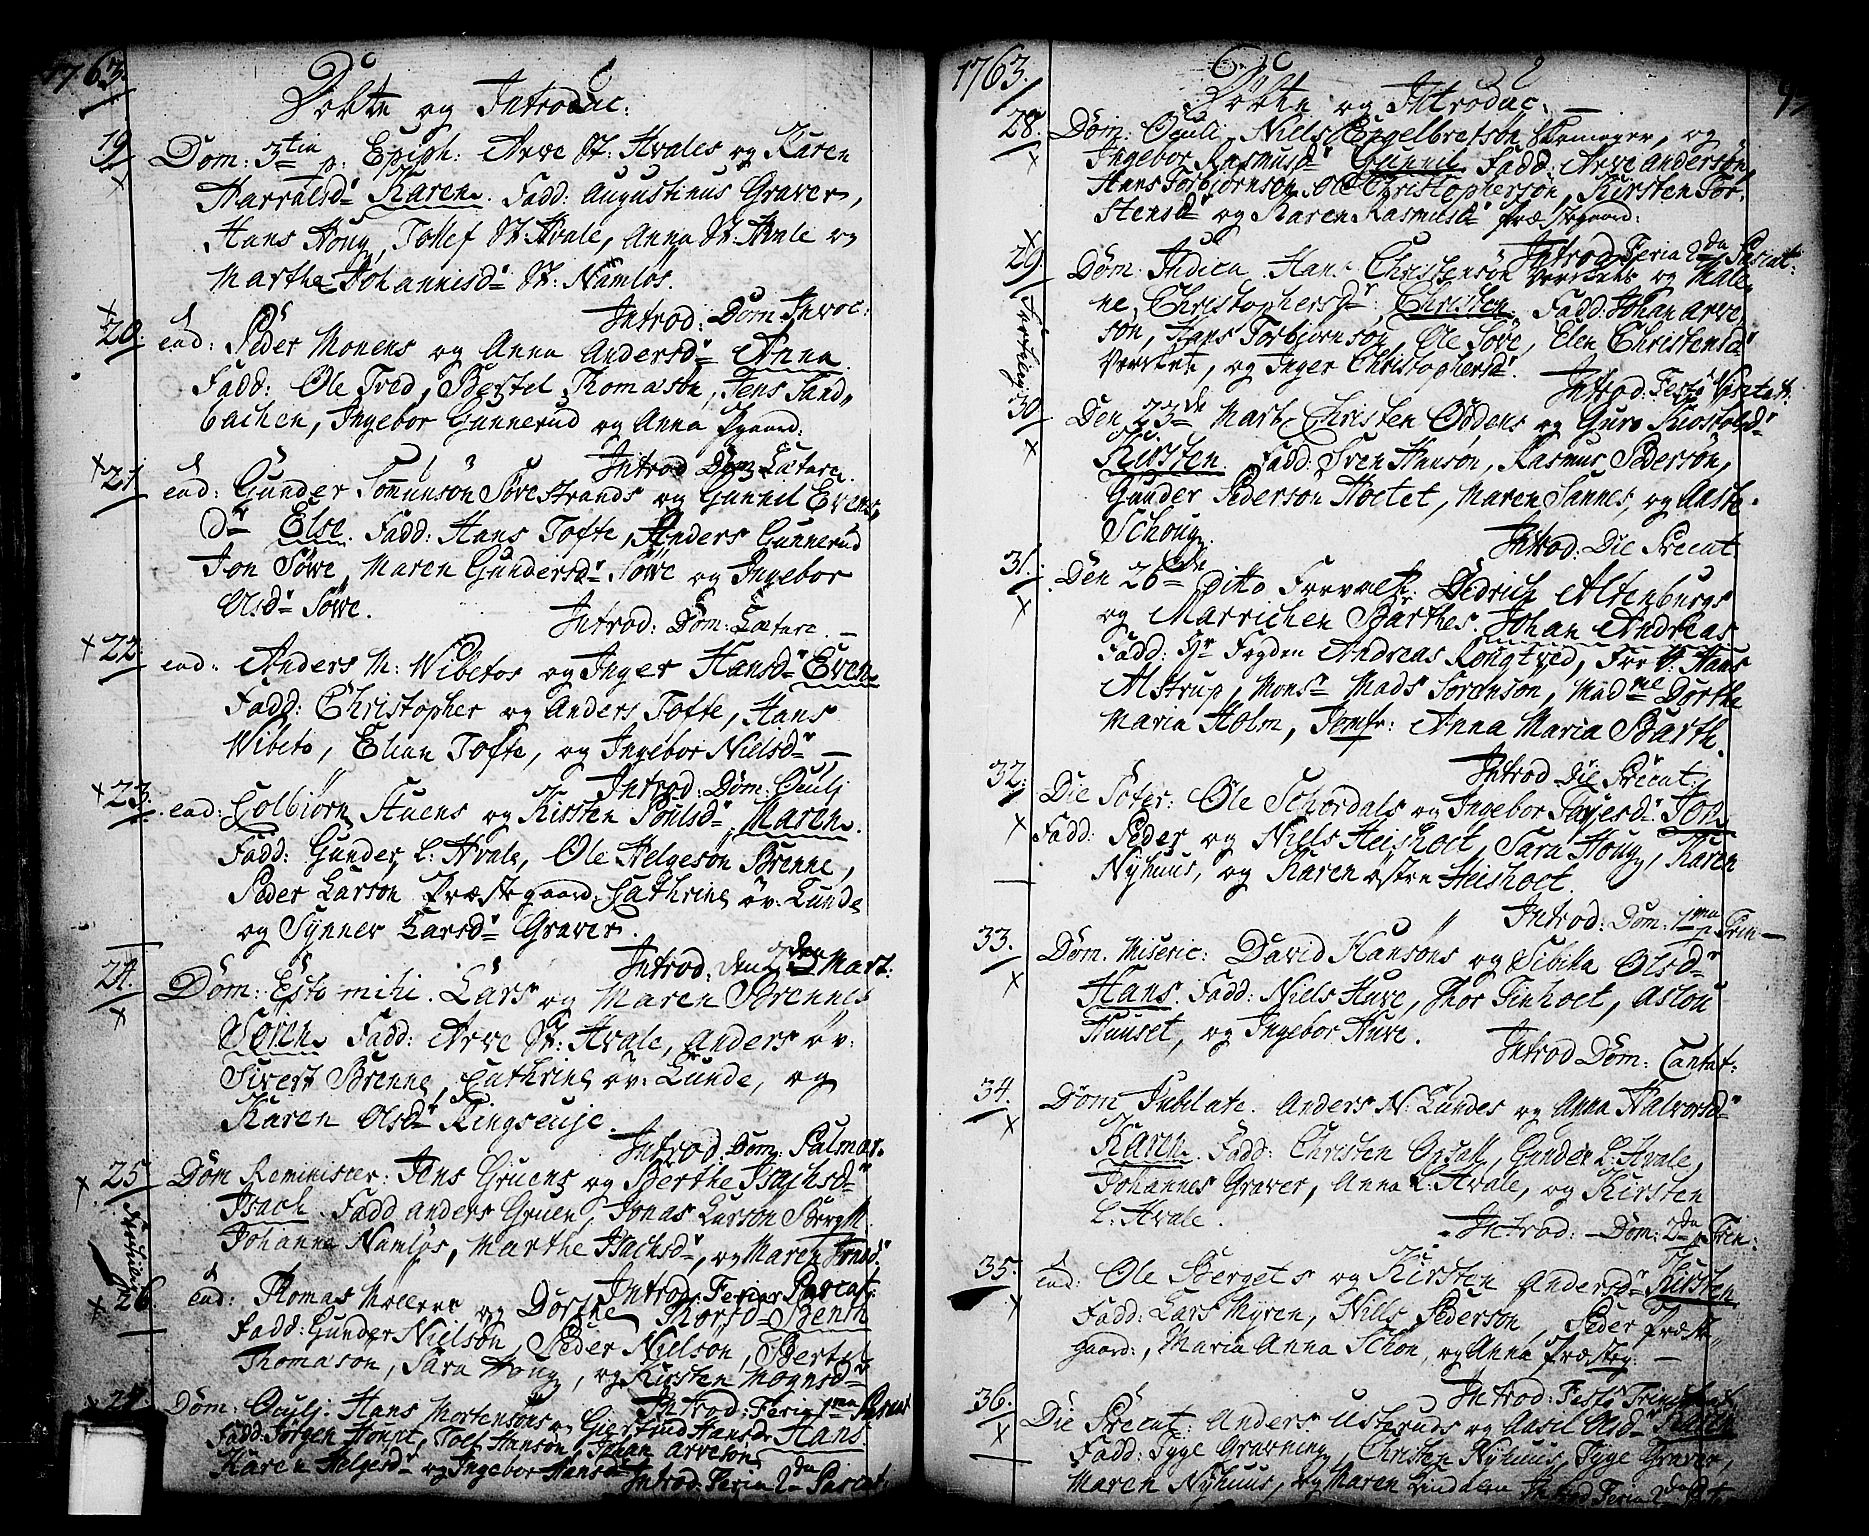 1763.
Döbte og Introduc:
19 Dom: 3tia p. Epiph: Arve St: Hvales og Karen
Harralsdr Karen. Fadd: Augustinus Graver,
Hans Houg, Tollef St: Hvale, Anna St: Hvale og
Marthe Johannisdr St: Namløs.
Introd: Dom Invoc:
20. ead: Peder Monens og Anna Andersdr Anna
Fadd: Ole Tved, Bertel Thomasøn, Jens Sand-
bachen, Ingebor Gunnerud og Anna
Introd Dom Lætare
21 ead: Gunder Søvestrands og Gunnil Evens
dr Else. Fadd: Hans Tofte, Anders Gunnerud
Jon Søwe, Maren Gundersdr Søwe og Ingebor
Olsdr Søwe.
Introd: Dom: Lætare.
22 ead: Anders M: Wibetos og Inger Hansdr Even
Fadd: Christopher og Anders Tofte, Hans
Wibeto, Elian Tofte, og Ingebor Nielsdr
Introd: Dom: Oculj
23. ead: Colbiørn Stuens og Kirsten Poulsdr Maren.
Fadd: Gunder L: Hvale, Ole Helgesøn Brenne,
Peder Larson Præstegaard, Cathrine öv: Lunde
og Synnev Larsdr Graver.
Introd. den Mart:
24. Dom: Esto mihi. Lars og Maren Brennes
Søren Fadd: Arve St: Hvale, Anders öv:
Sivert Brenne, Cathrine öv: Lunde, og
Karen Olsdr Ringseuje.
Introd. Dom: Palmar.
25 Dom Reminiscer: Jens Gruens og Berthe Isachsdr
Isach Fadd Anders Gruen, Jonas Larson Bergth
Johanne Namløs, Marthe Isachsdr, og Maren
Introd: Feria Pascat:
26. ead: Thomas Mollers og Dorthe Thorsdr Benth
Fadd: Gunder Nielsøn, Peder Nielsøn, Bertel
Thomasøn, Sara Houg, og Kirsten Mognsdr
Introd: Feria 1ma Pascat
27. Dom: Oculj: Hans Mortensøns og Giertrud Hansdr Hans
Fadd: Jørgen Houpt, Tolf Hansøn, Johan Arvesøn
Karen Helgesdr og Ingebor Hansdr
Introd: Feria 2da Pascat:
1763.
Döbte og Introduc:
28. Dom: Oculi. Niels Engelbretsøn og
Ingebor Rasmusdr Gunnil Fadd: Arve Andersøn
Hans Torbjørnsøn, Ole Christophersøn, Kirsten Tor-
stensdr og Karen Rasmusdr Præstegaard.
Introd: Feria 2da Pascat:
29 Dom. Judica Hans Christensøn Verckets og Male-
ne Christophersdr: Christen Fadd: Johan Arve-
søn, Hans Torbjørnsøn, Ole Søve, Elen Christensdr
Vercket, og Inger Christophersdr.
Introd: Festo Visitat:
30 Den 23de Mart. Christen Oddens og Guro Kiostolsdr
Kirsten Fadd: Sven Hansøn, Rasmus Pedersøn,
Gunder Pedersøn Noetet, Maren Sannes, og Anne
Schoug.
Introd: Die Precat
31. Den 26de Ditto Forvalt: Didrich Altenburgs
og Marrichen Barthes. Johan Andreas
Fadd: Hr Fogden Andreas Rougtved, Hans
Alstrup, Monsr Mads Sorenson, Madme Dorthe
Maria Holm, Jomfr: Anna Maria Barth.
Introd Die Precat:
32. Die Søter: Ole Schordals og Ingebor Tarjesdr Jon
Fadd: Peder og Niels Heishoet, Sara Houg, Karen
Nyhuus, og Karen østre Heishoet.
Introd: Dom: 1ma p Trin
33. Dom. Miseric: David Hansøns og Sibilla Olsdr
Hans. Fadd: Niels Huve, Thor Finhoet, Aslou
Huuset, og Ingebor Huve.
Introd Dom: Cantat:
34. Dom Jubilate. Anders N: Lundes og Anna Halvorsdr
Karen. Fadd: Christen Opsatt, Gunder L: Hvale,
Johannes Graver, Anna L: Hvale, og Kirsten
L: Hvale.
Introd: Dom: 2da p Trin:
35. ead: Ole Bergets og Kirsten Andersdr Kirsten
Fadd: Lars Myren, Nills Pederson, Peder Præste-
gaard:, Maria Anna Schøn, og Anna Præsteg:
Introd: Festo Trinitat
36. Die Precat: Anders Usteruds og Aasil Olsdr Karen
Fadd: Tyge Grawning, Christen Nyhuus, Tyge Graver,
Maren Nyhuus, og Maren Linddalen Introd Feria 2da